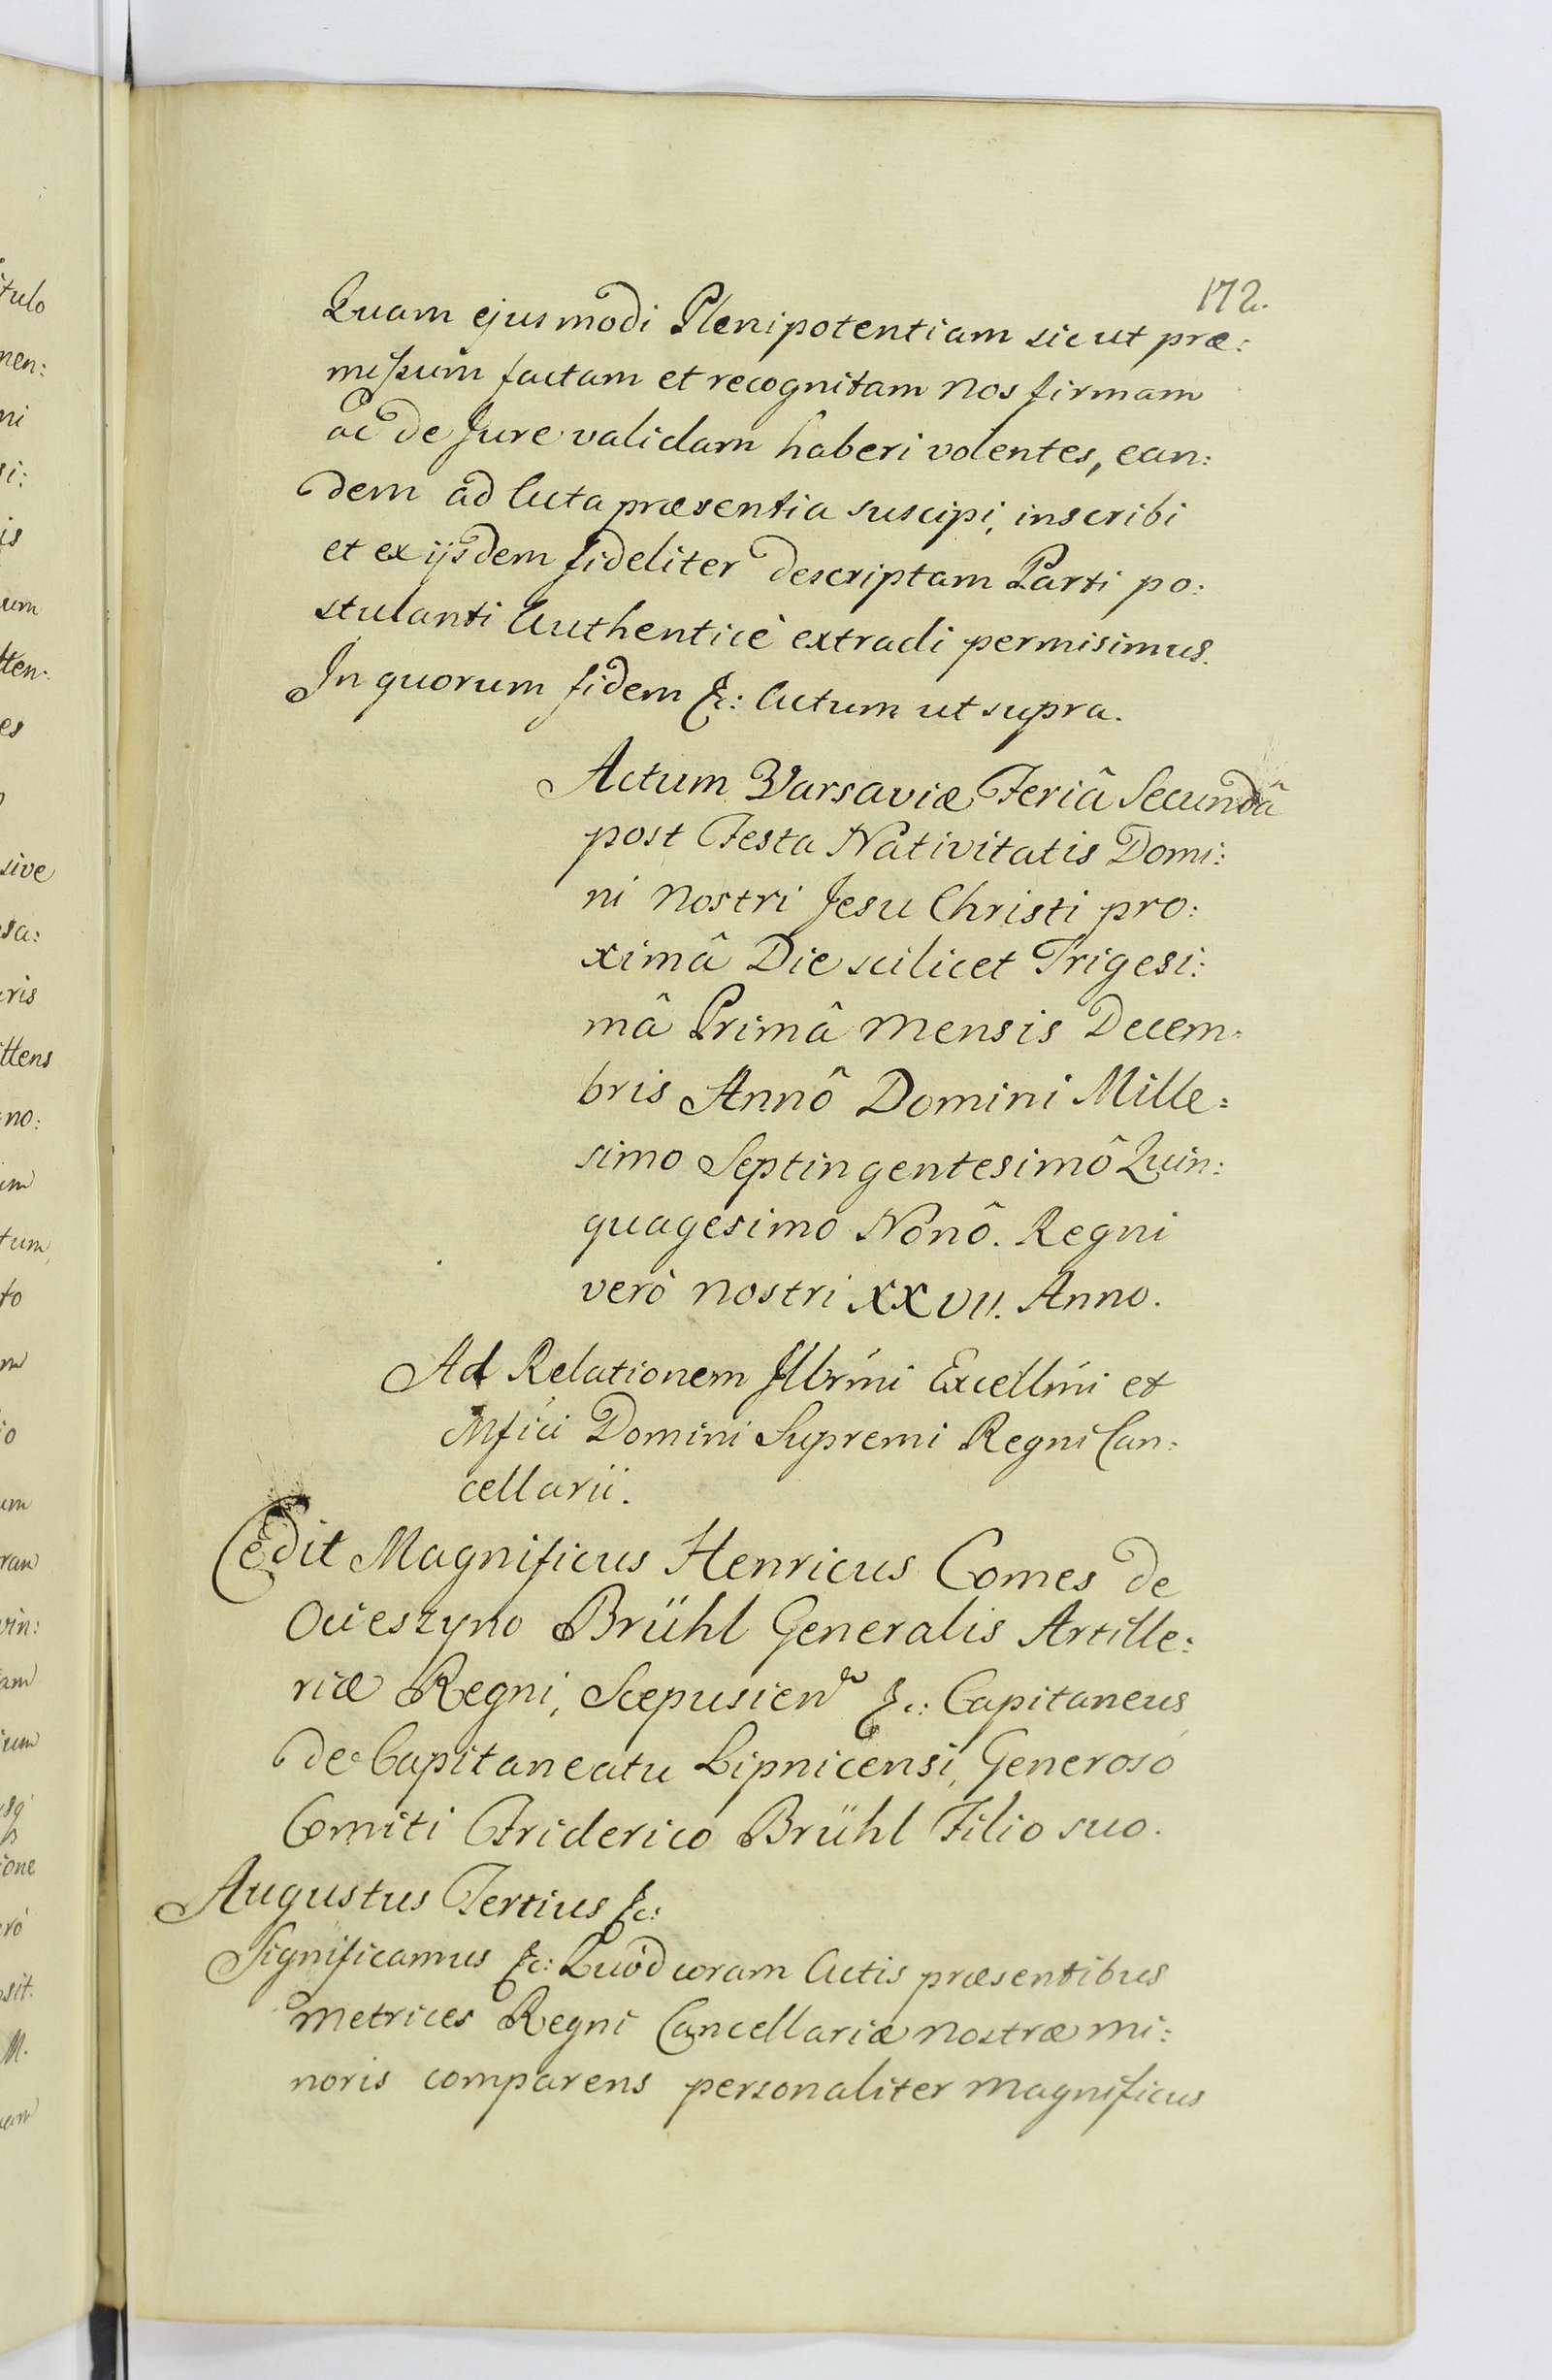 172.
Quam ejusmodi Plenipotentiam sicut præ:
mißum factam et recognitam nos firmam
ac de Jure validam haberi volentes, ean:
dem ad Acta præsentia suscipi, inscribi
et ex ijsdem fideliter descriptam Parti po:
stulanti Authenticè extradi permisimus.
In quorum fidem &c: Actum ut supra.
Actum Varsaviæ Feriâ Secundâ
post Festa Nativitatis Domi:
ni nostri Jesu Christi pro:
ximâ Die scilicet Trigesi:
mâ Primâ mensis Decem:
bris Annô Domini Mille:
simo Septingentesimô Quin:
quagesimo Nonô. Regni
verò nostri XXVII. Anno.
Ad Relationem Illrmi Excellmi et
Mfici Domini Supremi Regni Can:
cellarii.
Cedit Magnificus Henricus Comes de
Ocieszyno Brühl Generalis Artille:
riæ Regni, Scepusien &c: Capitaneus
de Capitaneatu Lipnicensi, Generoso
Comiti Friderico Brühl Filio suo.
Augustus Tertius &c:
Significamus &c: Quod coram Actis præsentibus
Metrices Regni Cancellariæ nostræ mi:
noris comparens personaliter magnificus
tulo
nen:
ni
si:
is
um
tten:
es
sive
sa:
ris
ittens
no:
im
tum,
to
io
um
ran
vin:
am
ium
ione
rò
sit.
M.